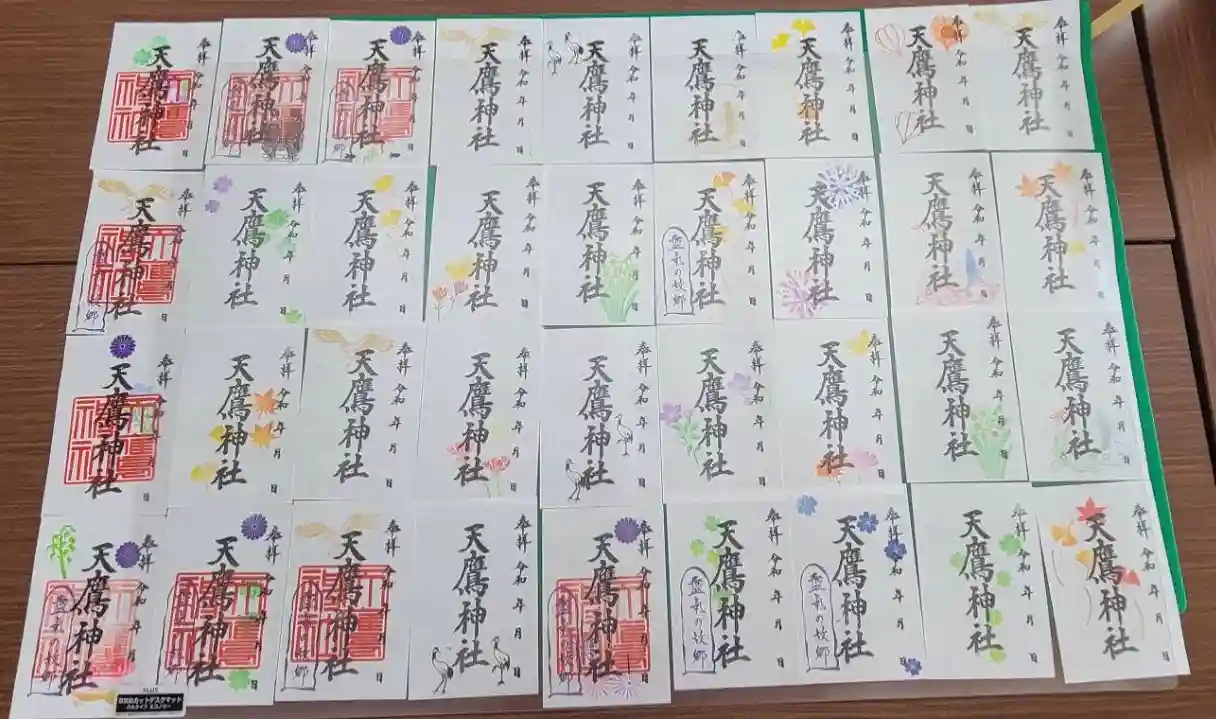 奉拝 令和 年 月 日
天鷹神社
奉拝 令和 年 月 日
天鷹神社
奉拝 令和 年 月 日
天鷹神社
奉拝 令和 年 月 日
天鷹神社
奉拝 令和 年 月 日
天鷹神社
奉拝 令和 年 月 日
天鷹神社
奉拝 令和 年 月 日
天鷹神社
奉拝 令和 年 月 日
天鷹神社
奉拝 令和 年 月 日
天鷹神社
奉拝 令和 年 月 日
天鷹神社
郷
奉拝 令和 年 月 日
天鷹神社
奉拝 令和 年 月 日
天鷹神社
奉拝 令和 年 月 日
天鷹神社
奉拝 令和 年 月 日
天鷹神社
奉拝 令和 年 月 日
天鷹神社
の故郷
奉拝 令和 年 月 日
天鷹神社
奉拝 令和 年 月 日
天鷹神社
奉拝 令和 年 月 日
天鷹神社
奉拝 令和 年 月 日
天鷹神社
奉拝 令和 年 月 日
天鷹神社
奉拝 令和 年 月 日
天鷹神社
奉拝 令和 年 月 日
天鷹神社
奉拝 令和 年 月 日
天鷹神社
奉拝 令和 年 月 日
天鷹神社
奉拝 令和 年 月 日
天鷹神社
奉拝 令和 年 月 日
天鷹神社
奉拝 令和 年 月 日
天鷹神社
奉拝 令和 年 月 日
天鷹神社
の故郷
奉拝 令和 年 月 日
天鷹神社
郷
奉拝 令和 年 月 日
天鷹神社
郷
奉拝 令和 年 月 日
天鷹神社
奉拝 令和 年 月 日
天鷹神社
の故郷
奉拝 令和 年 月 日
天鷹神社
の故郷
奉拝 令和 年 月 日
天鷹神社
の故郷
奉拝 令和 年 月 日
天鷹神社
奉拝 令和 年 月 日
天鷹神社
PLUS